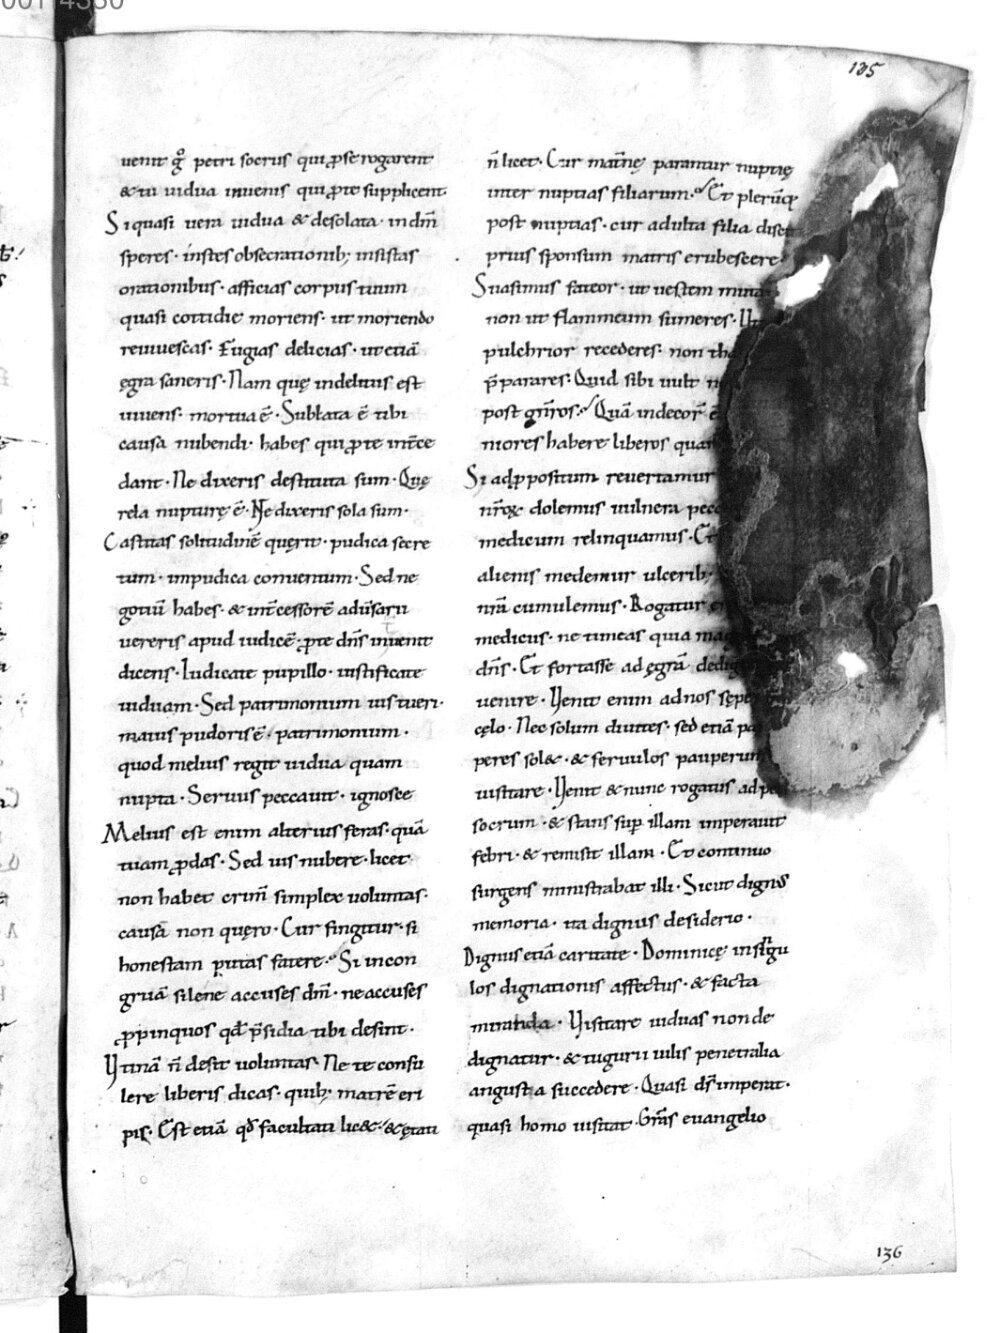 00174330
135
uenit gͦ petri socrus qui ꝓse rogarent
& tu uidua inuenis qui ꝓte supplicent.
Si quasi uera uidua & desolata · in dm̄
speres · instes obsecrationib; insistas
orationibus · afficias corpus tuum
quasi cottidie moriens · ut moriendo
reuiuescas · Fugias delicias · ut etiā
ęgra saneris · Nam quę indelitiis est
uiuens · mortua ē · Sublata ē tibi
causa nubendi · habes qui ꝓte int̄ce
dant · Ne dixeris destituta sum · Quę
rela nupturę ē · Ne dixeris sola sum ·
Castitas solitudinē quęrit · pudica secre
tum · impudica conuentum · Sed ne
gotiū habes · & int̄cessorē adūsarii
uereris apud iudicē · ꝓte dn̄s inuenit
dicens · Iudicate pupillo · iustificate
uiduam · Sed patrimonium uis tueri ·
maius pudoris ē patrimonium ·
quod melius regit uidua quam
nupta · Seruus peccauit · ignosce
Melius est enim alterius feras · quā
tuam ꝓdas · Sed uis nubere · licet
non habet crim̄ simplex uoluntas ·
causā non quęro · Cur fingitur · si
honestam putas fatere · Si incon
gruā silene accuses dm̄ · ne accuses
ꝓpinquos qđ p̄sidia tibi desint ·
Vtinā n̄ desit uoluntas · Ne te consu
lere liberis dicas · quib; matrē eri
pis · Est etiā qđ facultati lic& · & ętati
n̄ licet · Cur mat̄nę parantur nuptię
inter nuptias filiarum · Et plerūq
post nuptias · cur adulta filia disc
prius sponsum matris erubescere
Suasimus fateor · ut uestem muta
non ut flammeum sumeres · Ut
pulchrior recederes · non tha
p̄parares · Quid sibi uult n
post gn̄ros · Quā indecor̄ ē
niores habere liberos quam
Si ad ꝓpositum reuertamur
nr̄oꝝ dolemus uulnera pecc
medicum relinquamus · Et
alienis medemur ulcerib;
nr̄a cumulemus · Rogatur
medicus · ne timeas quia mag
dn̄s · Et fortasse ad ęgrā dedig
uenire · Uenit enim ad nos sępe
cęlo · Nec solum diuites · sed etiā pau
peres sol& · & seruulos pauperum
uisitare · Uenit & nunc rogatus ad pe
socrum · & stans suꝑ illam imperauit
febri · & remisit illam · Et continuo
surgens ministrabat illi · Sicut dignꝰ
memoria · ita dignus desiderio ·
Dignus etiā caritate · Dominicę insigu
los dignationis affectus · & facta
miranda · Uisitare uiduas non de
dignatur · & tugurii uilis penetralia
angusta succedere · Quasi dſ̄ imperat ·
quasi homo uisitat · Gr̄as euangelio
136